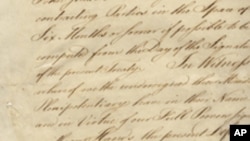 contracting Parties in the Space of
Six Months or sooner if possible to be
computed from the Day of the Signature
of the present Treaty. In Witness
whereof we the undersigned their Ministers
Plenipotentiary have in their Name
and in Virtue of our Full Powers
the present
AP